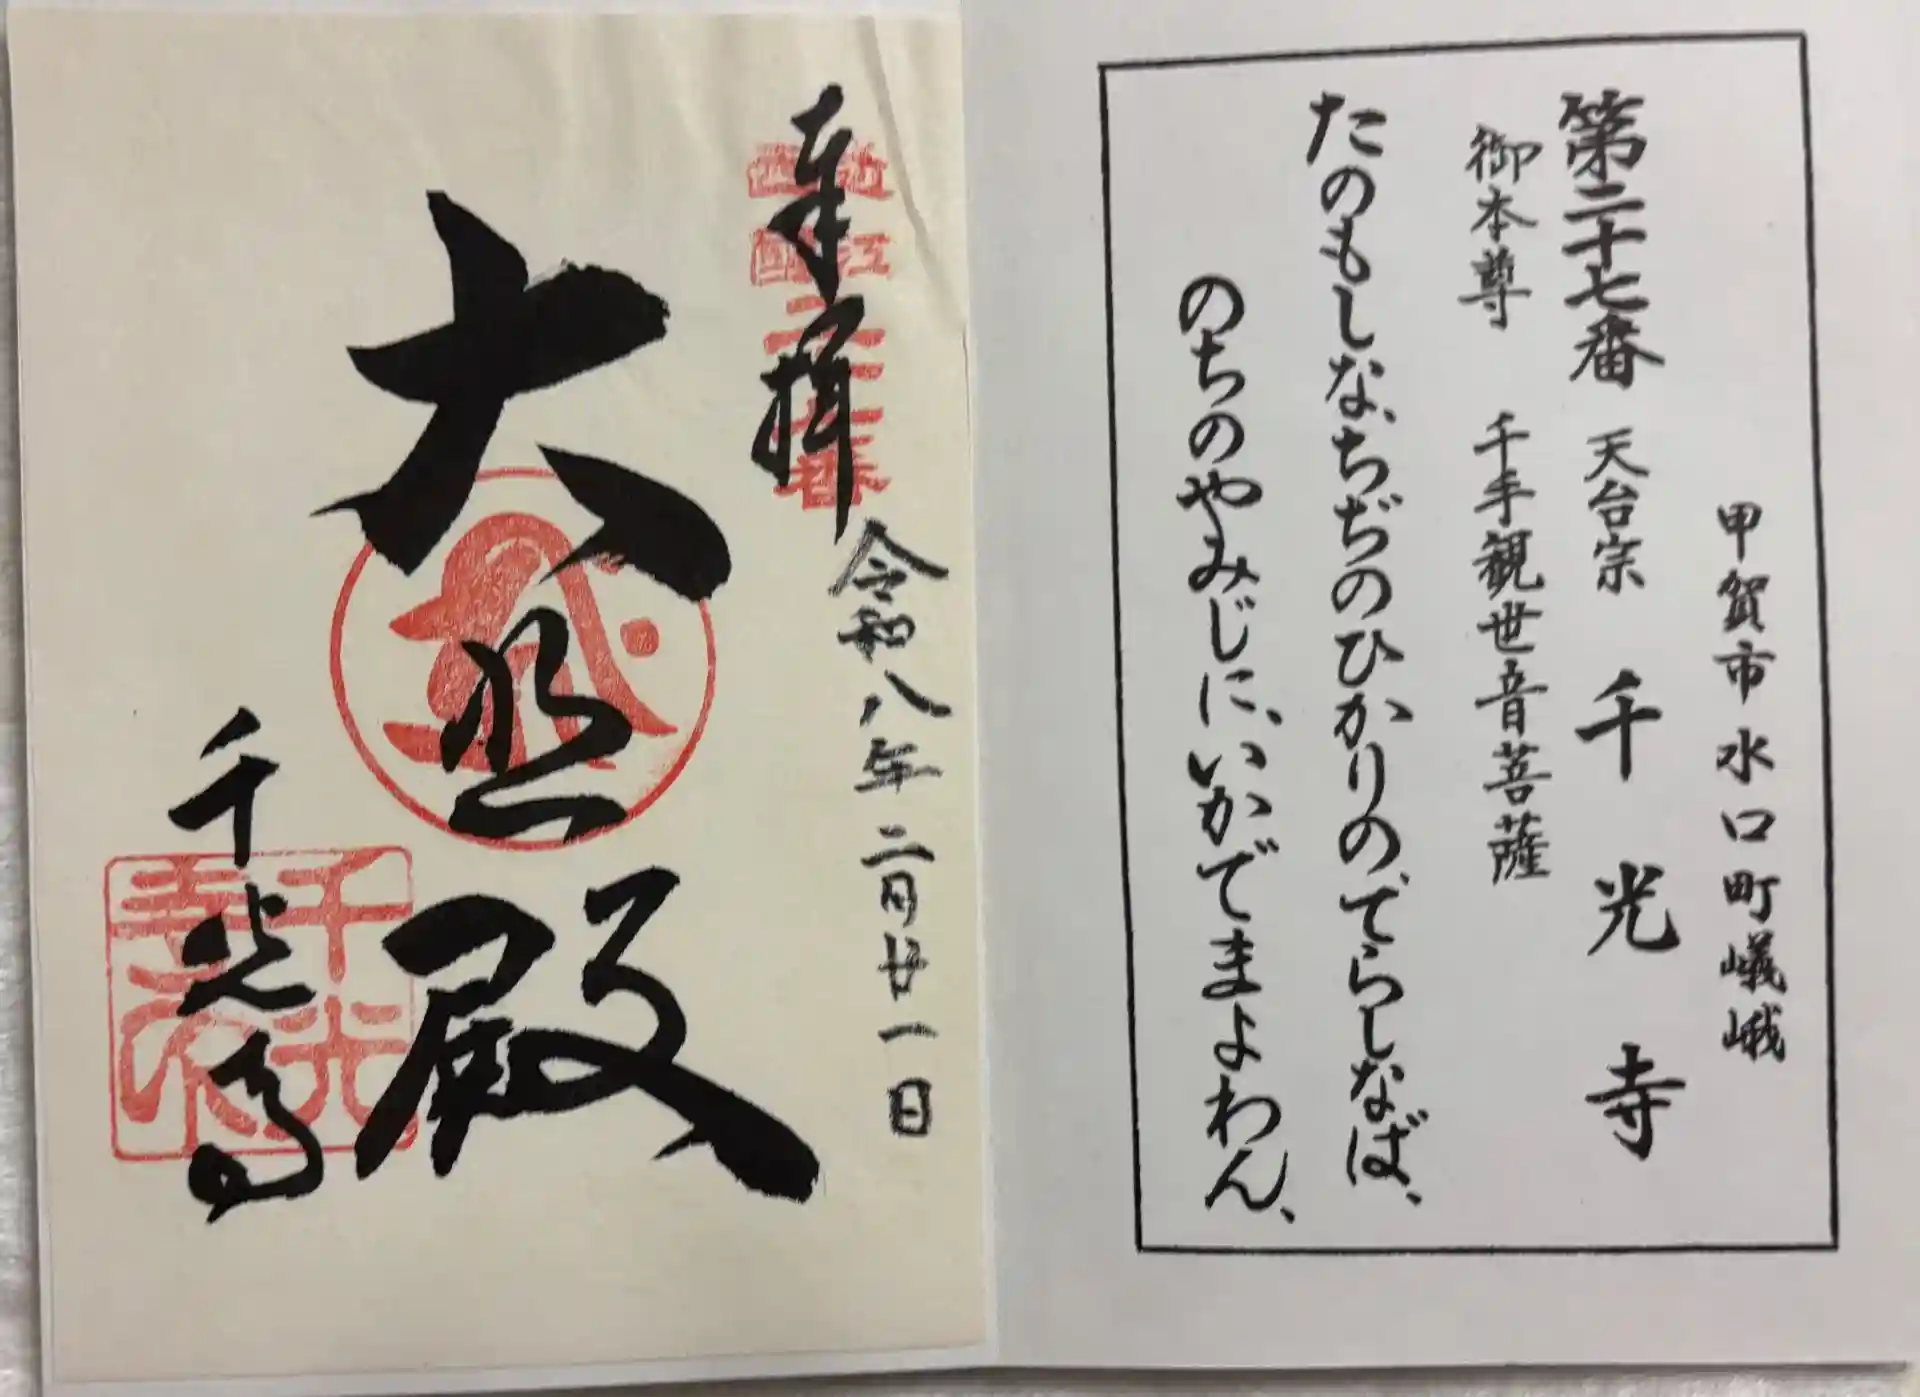 甲賀市水口町嶬峨
第二十七番 天台宗 千光寺
御本尊 千手観世音菩薩
たのもしな、ちぢのひかりの、でらしなば、
のちのやみじに、いかでまよわん、
奉拝
近江西国二十七番
令和八年二月廿一日
大悲殿
千光寺